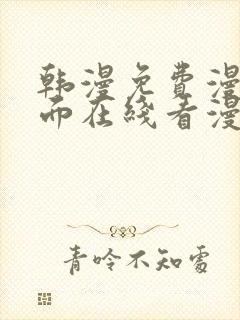 韩漫免费漫
而在线看漫
青吟不知处